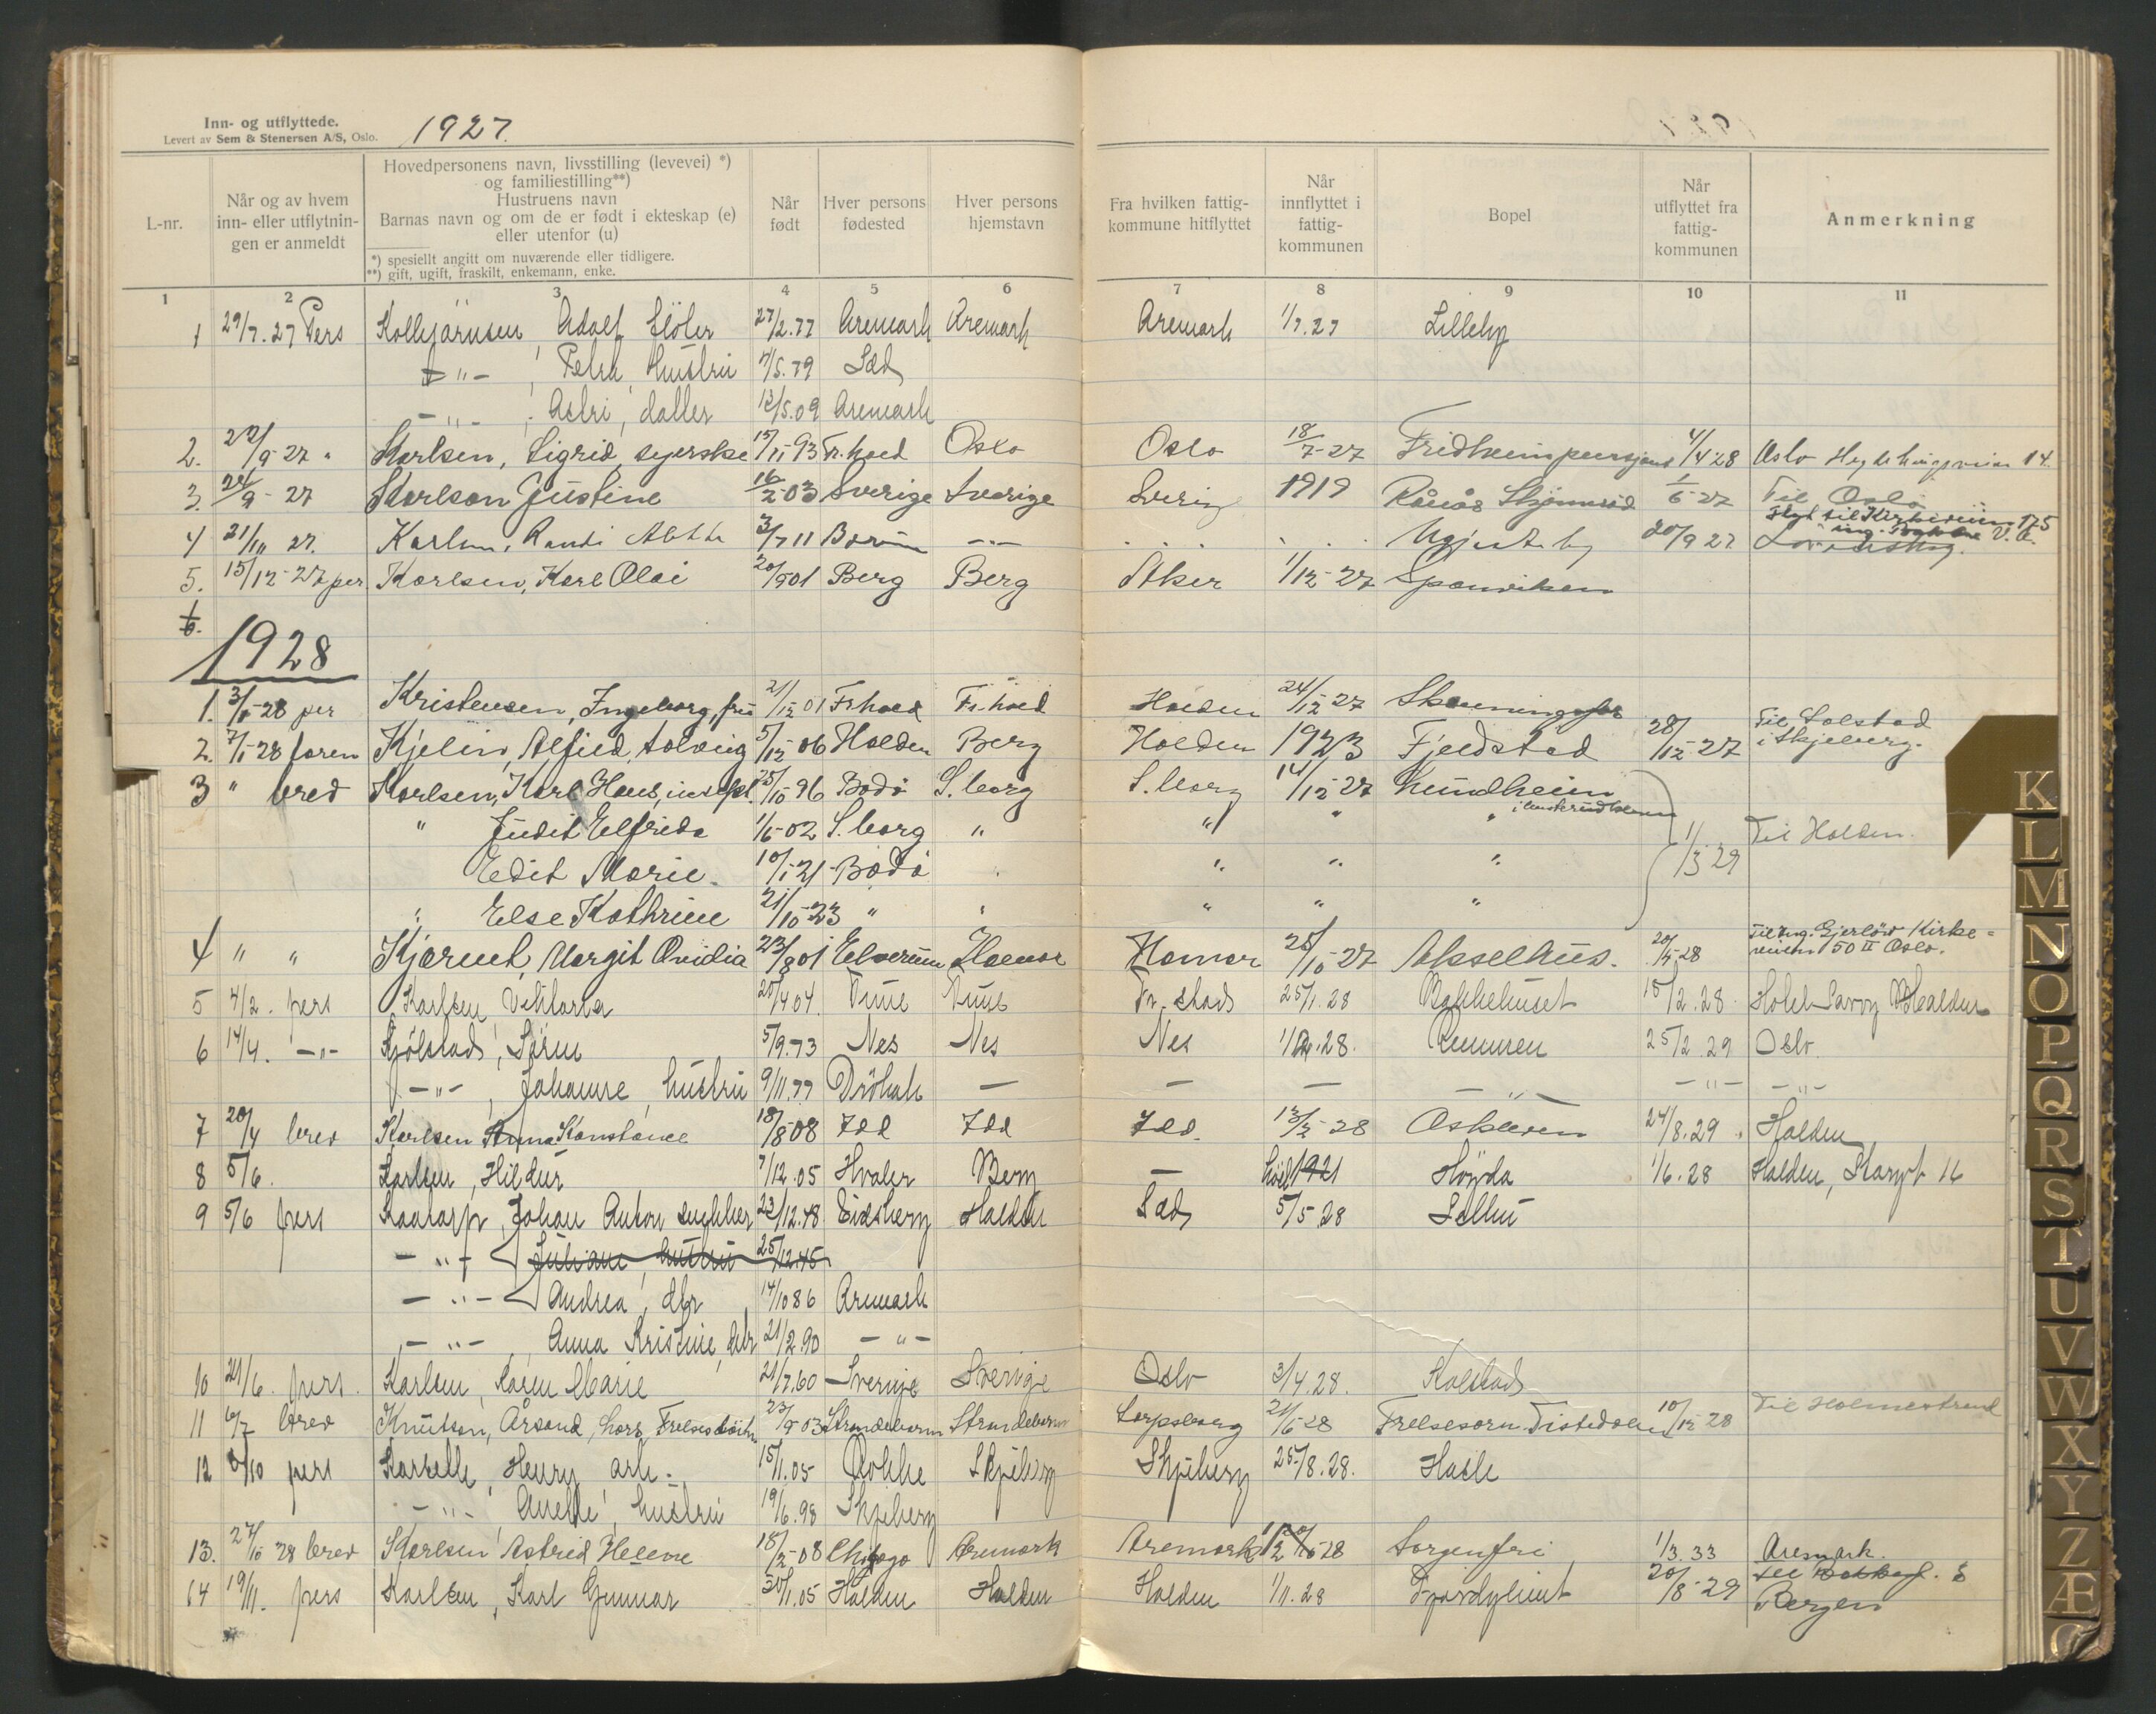 Inn- og utflyttede.
Levert av Sem & Stenersen A/S, Oslo.
1927.
L-nr.
Når og av hvem inn- eller utflytnin-gen er anmeldt
Hovedpersonens navn, livsstilling (levevei) *)
og familiestilling**)
Hustruens navn
Barnas navn og om de er født i ekteskap (e)
eller utenfor (u)
*) spesiellt angitt om nuværende eller tidligere.
**) gift, ugift, fraskilt, enkemann, enke.
Når født
Hver persons fødested
Hver persons hjemstavn
Fra hvilken fattig-kommune hitflyttet
Når innflyttet i fattig-kommunen
Bopel
Når utflyttet fra fattig-kommunen
Anmerkning
1 2 3 4 5 6 7 8 9 10 11
1 29/7.27 Pers Adolf 27/2.77 Aremark Aremark Aremark 1/7.27 Lilleby
-"- , Petra, hustru 4/5.79
-"- , Astri, datter 12/5.09 Aremark
2. 22/9-27 " Karlsen, Sigrid syerske 15/11-93 Fr.hald Oslo Oslo 18/7-27 Fridheim 4/4-28 Oslo 14.
3. 24/9-27 Karlson Justine 16/2-03 Sverige Sverige Sverig 1919 1/6-27 Til Oslo
4 21/10 27. Karlsen, Randi 3/7 11 -"- 20/9 27
5. 15/12-27 per Karlsen, Karl Olai 20/9 01 Berg Berg Aker 1/12-27 Sponviken
1928
1. 3/1-28 per Kristensen, Ingeborg, fru 21/12 01 Fr.hald Fr.hald Halden 24/12 27
2. 7/1-28 foren Kjelin, Alfild Solveig 5/12 06 Halden Berg Halden 1923 Fjeldstad 28/12-27 Til Solstad i Skjeberg.
3 " brev Karlsen, Karl Hans, 25/10 96 Bodø S.borg S.borg 14/12 27 Lundheim
" Judit Elfrida 1/6-02 S.borg " " " " 1/3 29 Til Halden.
Edit Marie 10/1-21 Bodø " " " "
" Else Kathrine 21/10-23 " " " " "
4 " " Margit Ovidia 23/8 01 Elverum Hamar Hamar 25/10-27 Akselhus. 20/4-28 Til Ing. Gjerløw Kirke-veien 50 II Oslo.
5 4/2. pers Karlsen 20/4 04. Tune Tune Fr.stad 25/1.28 Bakkehuset 15/2.28 Hotel Savoy Halden
6 14/4. -"- Kjølstad, Søren 5/9.73 Nes Nes Nes Remmen 25/2.29 Oslo.
-"- , Johanne, hustru 9/11.77 Drøbak — — — — -"- -"-
7 20/4 brev Karlsen Anna Konstance 18/8-08 Idd Idd Idd. 13/2-28 24/8.29. Halden
8 5/6. Karlsen, Hildur 7/12.05 Hvaler Berg — 1921 Høyda 1/6.28 Halden,
9 5/6 pers Johan Anton 23/12.48 Eidsberg Halden 5/5.28
-"- Juliane hustru 25/12.45
-"- Andrea, dtr 14/10 86 Aremark
-"- , Anna Kristine, dtr 21/2.90 -"-
10 21/6. pers. Karlsen, Karen Marie 21/7.60 Sverige Sverige Oslo 3/4.28. Kolstad
11 6/7 brev Knutson, Årsand, 23/9 03 Sarpsborg 21/6-28 Frelsesarm. Tistedalen 10/12-28 Til Holmestrand
12 8/10 pers Henry, arb. 15/1.05 Rakke Skjeberg Skjeberg 25/8.28. Hasle
-"- , hustru 19/6.98 Skjeberg
13. 27/10 28 brev Karlsen Astrid Helene 18/2-08 Chicago Aremark Aremark Sorgenfri 1/3.33 Aremark.
14 19/11. pers Karlsen, Karl Gunnar 30/1.05 Halden Halden Halden 1/11.28 Fjordglimt 20/8-29 Bergen
K L M N O P Q R S T U V W X Y Z Æ